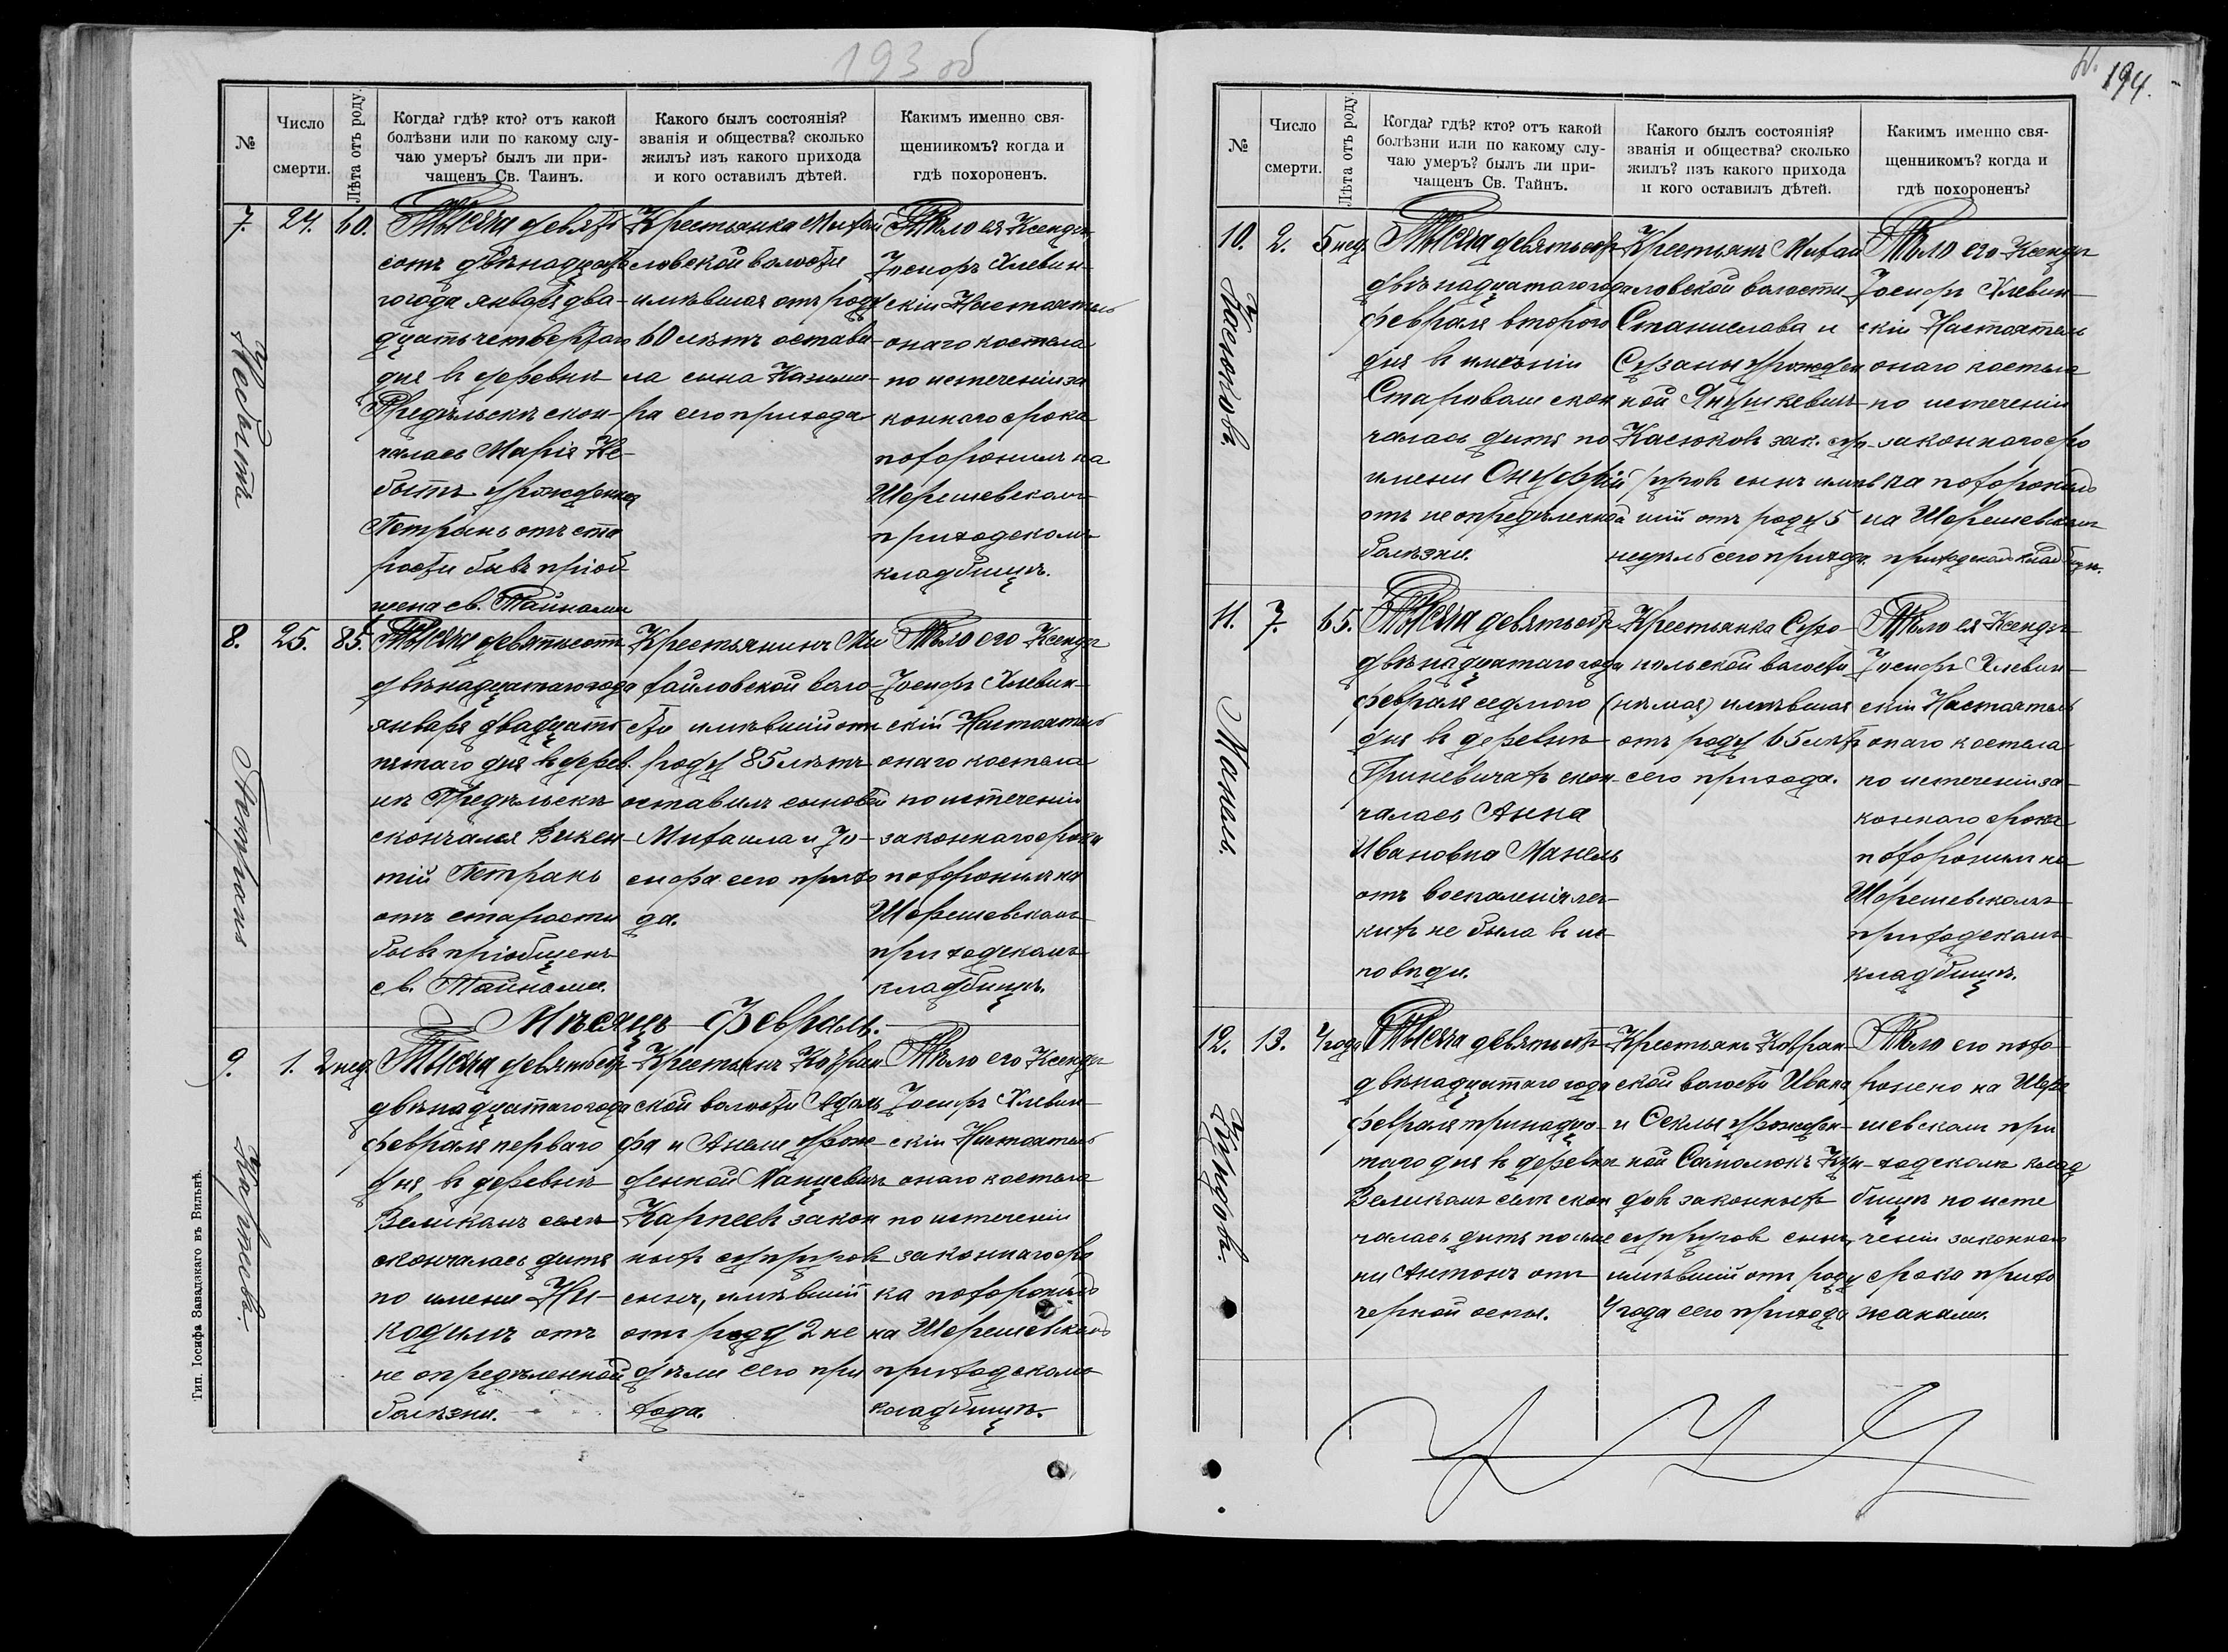 193 об
№
Число
смерти.
Лѣта отъ роду.
Когда? гдѣ? кто? отъ какой
болѣзни или по какому слу-
чаю умеръ? былъ ли при-
чащенъ Св. Таинъ.
Какого былъ состоянія?
званія и общества? сколько
жилъ? изъ какого прихода
и кого оставилъ дѣтей.
Какимъ именно свя-
щенникомъ? когда и
гдѣ похороненъ.
7.
Небытъ
24.
60.
Тысяча девять
сотъ двѣнадцат
гогода января два-
дцатьчетвертаго
дня въ деревнѣ
Предѣльскѣ скон-
чалась Марія Не-
бытъ урожденная
Петранъ отъ ста
рости бывъ пріоб
щена св. Тайнами
Крестьянка Михай
ловской волости
имѣвшая отъ роду
60 лѣтъ остави-
ла сына Казими-
ра сего прихода
Тѣло ея Ксендзъ
Іосифъ Хлевин-
скій Настоятель
онаго костела
по истеченіи за
коннаго срока
похоронилъ на
Шерешевскомъ
приходскомъ
кладбищѣ.
8.
Петранъ
25.
85.
Тысяча девятьсотъ
двѣнадцатаго года
января двадцать
пятаго дня въ дерев.
нѣ Предѣльскѣ
скончался Викен-
тій Петранъ
отъ старости
бывъ пріобщенъ
св. Тайнами.
Крестьянинъ Ми
хайловской воло-
сти имѣвшій отъ
роду 85 лѣтъ
оставилъ сыновей
Михаила и Іо-
сифа сего прихо
да.
Тѣло его Ксендзъ
Іосифъ Хлевин-
скій Настоятель
онаго костела
по истеченіи
законнаго срока
похоронилъ на
Шерешевскомъ
приходскомъ
кладбищѣ.
Мѣсяцъ Февраль.
9.
Карпеевъ.
1.
2 нед
Тысяча девятьсот
двѣнадцатаго года
февраля перваго
дня, въ деревнѣ
Великомъ селѣ
скончалась дитя
по имени Ни-
кодимъ отъ
не опредѣленной
болѣзни.
Крестьянъ Ковран
ской волости Адоль
фа и Анели урож-
денной Манцевичъ
Карпеевъ закон
ныхъ супруговъ
сынъ, имѣвшій
отъ роду 2 не
дѣли сего при
хода.
Тѣло его Ксендзъ
Іосифъ Хлевин-
скій Настоятель
онаго костела
по истеченіи
законнаго сро
ка похоронилъ
на Шерешевскомъ
приходскомъ
кладбищѣ.
Тип. Іосифа Завадзкаго въ Вильнѣ.
194.
№
Число
смерти.
Лѣта отъ роду.
Когда? гдѣ? кто? отъ какой
болѣзни или по какому слу-
чаю умеръ? былъ ли при-
чащенъ Св. Тайнъ.
Какого былъ состоянія?
званія и общества? сколько
жилъ? изъ какого прихода
и кого оставилъ дѣтей.
Какимъ именно свя-
щенникомъ? когда и
гдѣ похороненъ?
10.
Касюковъ.
2.
5 нед
Тысяча девятьсот
двѣнадцатаго года
февраля второго
дня въ имѣніи
Староволи скон
чалась дитя по
имени Онуфрій
отъ неопредѣленной
болѣзни.
Крестьянъ Михай
ловской волости
Станислава и
Сузаны урожден
ной Янушкевичъ
Касюковъ зак. суп-
руговъ сынъ имѣв
шій отъ роду 5
недѣль сего прихода.
Тѣло его Ксендзъ
Іосифъ Хлевин-
скій Настоятель
онаго костела
по истеченіи
законнаго сро
ка похоронилъ
на Шерешевскомъ
приходскомъ кладбищѣ.
11.
Манель.
7.
65.
Тысяча девятьсот
двѣнадцатаго года
февраля седмого
дня въ деревнѣ
Гриневичахъ скон-
чалась Анна
Ивановна Манель
отъ воспаленія лег-
кихъ не была въ ис-
повѣди.
Крестьянка Сухо-
польской волости
(нѣмая) имѣвшая
отъ роду 65 лѣтъ
сего прихода.
Тѣло ея Ксендзъ
Іосифъ Хлевин-
скій Настоятель
онаго костела
по истеченіи за-
коннаго срока
похоронилъ на
Шерешевскомъ
приходскомъ
кладбищѣ.
12.
13.
4 года
Тысяча девятьсот
двѣнадцатаго года
февраля тринадца-
таго дня въ деревнѣ
Великомъ селѣ скон
чалась дитя по име
ни Антонъ отъ
черной оспы.
Крестьянъ Ковран-
ской волости Ивана
и Феклы урожден-
ной Самолюкъ
законныхъ
супруговъ сынъ,
имѣвшій отъ роду
4 года сего прихода
Тѣло его похо-
ронено на Шере
шевскомъ при
ходскомъ клад
бищѣ по исте
ченіи законнаго
срока прихо
жанами.